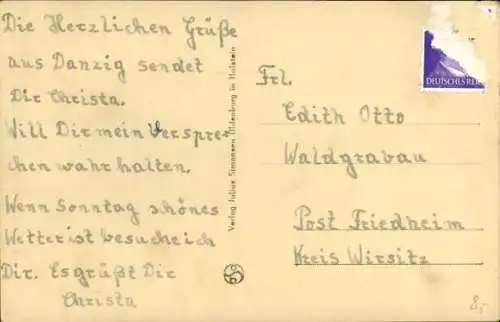 Die Herzlichen Grüße
aus Danzig sendet
Dir Christa.
Will Dir mein Verspre-
chen wahr halten.
Wenn Sonntag schönes
Wetter ist besuche ich
Dir. Es grüßt Dir
Christa
Verlag Julius Simonsen Oldenburg in Holstein
DEUTSCHES REICH
Frl.
Edith Otto
Waldgrabau
Post Friedheim
Kreis Wirsitz
8,-